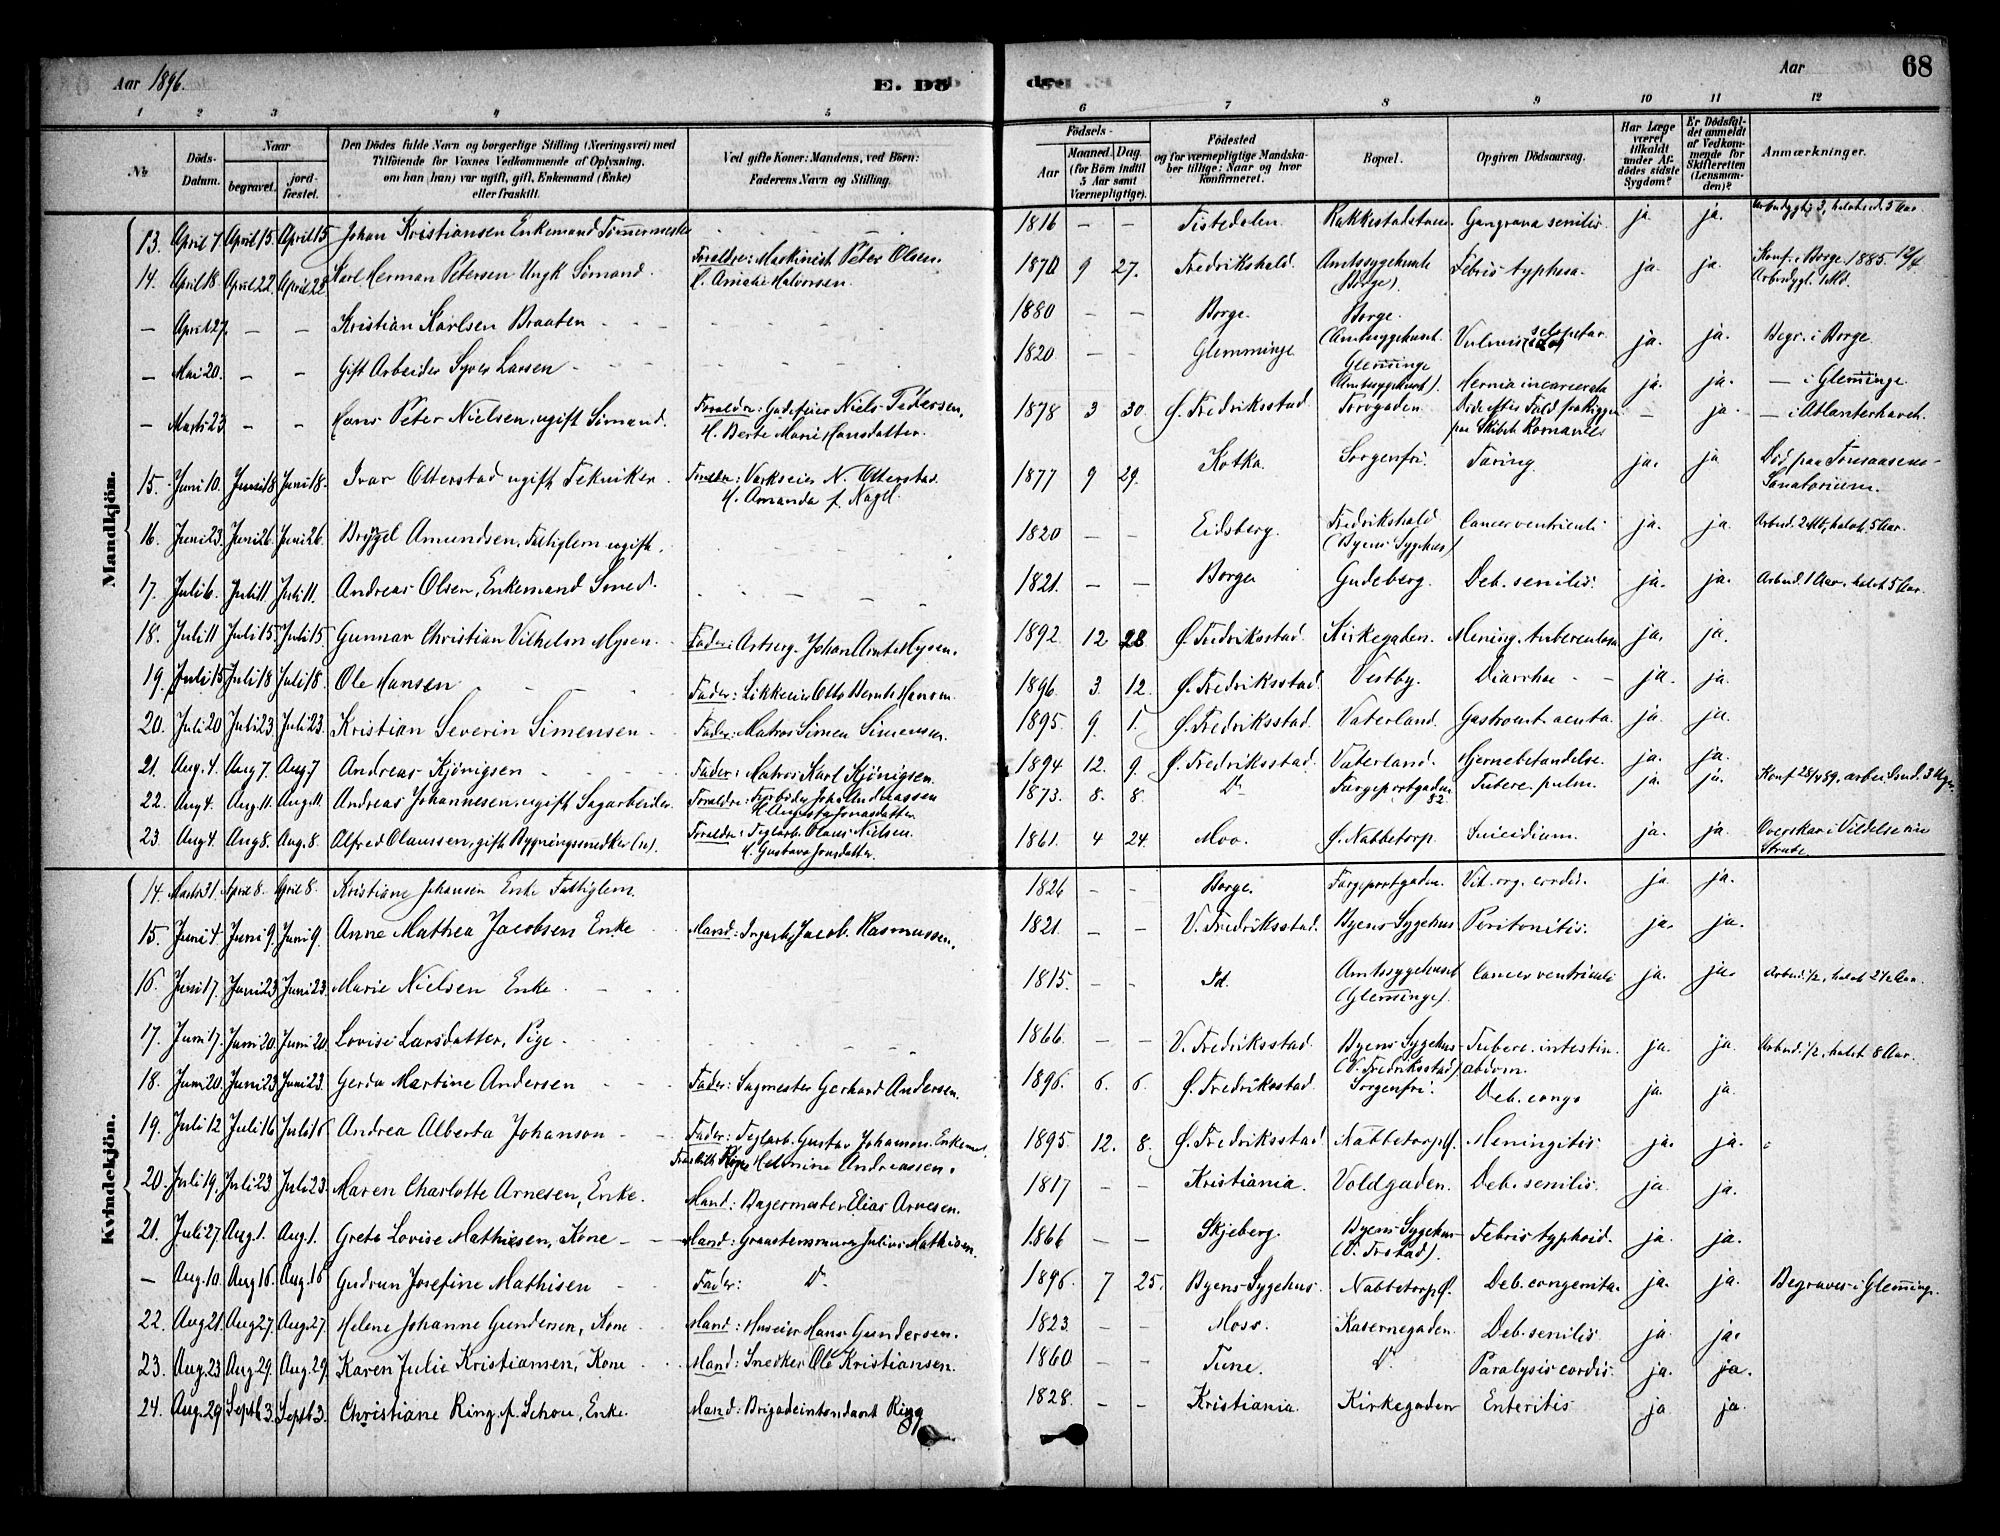 Aar 1896.
E. Döde.
Aar
68
1 2 3 4 5 6 7 8 9 10 11 12
№
Döds-Datum.
Naar
begravet.
jordfæstet.
Den Dödes fulde Navn og borgerlige Stilling (Næringsvei) med Tilföiende for Voxnes Vedkommende af Oplysning, om han (hun) var ugift, gift, Enkemand (Enke) eller fraskilt.
Ved gifte Koner: Mandens, ved Börn: Faderens Navn og Stilling.
Födsels-
Aar
Maaned. Dag. (for Börn indtil 5 Aar samt Værnepligtige).
Födested og for værnepligtige Mandskaber tillige: Naar og hvor konfirmeret.
Bopæl.
Opgiven Dödsaarsag.
Har Læge været tilkaldt under Afdödes sidste Sygdom?
Er Dödsfaldet anmeldt af Vedkommende for Skifteretten (Lensmanden)?
Anmærkninger.
Mandkjön.
13. April 7 April 15 April 15 Johan Kristiansen Enkemand Tømmermester 1816 – – Tistedalen Rakkestadstuen Gangræna senilis ja ja.
14. April 18. April 22 April 22 Karl Herman Petersen Ungk. Sømand. Forældre: Maskinist Peter Olsen. H. Amalie Halvorsen. 1870 9 27. Fredrikshald. Amtssygehuset (Borge). Febris typhosa. ja. ja. Konf. i Borge 1885 Arbeidygt. 1 Md.
– April 27 – – Kristian Karlsen Braaten 1880 – – Borge. Borge. (Amtssygehuset. ja. ja. Begr. i Borge
– Mai 20. – – Gift Arbeider Syver Larsen 1820. – – Glemminge Glemminge Amtssygehuset). Hernia incarcerata ja. ja. – i Glemminge
– Marts 23 – – Hans Peter Nielsen, ugift Sømand. Forældre: Gadefeier Niels Pedersen, H. Berte Marie Hansdatter. 1878 3 30. Ø. Fredriksstad Torvgaden. Døde efter Fald fra Riggen paa Skibet – ja. – i Atlanterhavet.
15. Juni 10. Juni 18 Juni 18. Ivar Otterstad ugift Tekniker Forældre: Værkseier N. Otterstad. H. Amanda f. Nagel. 1877 9 29. Kotka. Sorgenfri. Tæring. ja. ja Død paa Tonsaasens Sanatorium.
16. Juni 23. Juni 26. Juni 26. Amundsen, Fattiglem ugift. 1820 – – Eidsberg. Fredrikshald (Byens Sygehus) Cancer ventriculi ja. ja.
17. Juli 6. Juli 11. Juli 11. Andreas Olsen, Enkemand Smed. 1821. – – Borge Gudeberg. Deb. senilis. ja. ja. Arbud. 1 Aar, halvt 5 Aar.
18. Juli 11 Juli 15. Juli 15 Gunnar Christian Vilhelm Mysen Fader: Johan Mysen. 1892 12 28 Ø. Fredriksstad. Kirkegaden. Mening. tuberculosa ja. ja.
19. Juli 15 Juli 18 Juli 18. Ole Hansen Fader: Otto Bernt Hansen. 1896 3. 12. Ø. Fredriksstad. Vestby. Diarrhoe ja. ja.
20. Juli 20 Juli 23. Juli 23. Kristian Severin Simensen Fader: Matros Simen Simensen. 1895. 9. 1. Ø. Fredriksstad. Vaterland. Gastroent. acuta. ja. ja.
21. Aug. 4. Aug 7. Aug. 7 Andreas Kjønigsen Fader: Matros Karl Kjønigsen. 1894 12. 9. Ø. Fredriksstad. Vaterland. Hjernebetændelse. ja. ja.
22. Aug 4. Aug. 11. Aug. 11. Andreas Johannesen, ugift Sagarbeider. Forældre: Johs Andreassen H. Augusta Jonasdatter 1873. 8. 8. Do Færgeportgaden 32. Tuberc. pulm. ja. ja.
23. Aug 4. Aug 8. Aug. 8. Alfred Olaussen, gift Bygningssnedker Forældre: Teglarb. Olaus Nielsen. H. Gustava Jonsdatter. 1861. 4 24. Moss. Ø. Nabbetorp. Suicidium. ja. ja. Overskar i Vildelse sin Strube.
Kvindekjön.
14. Marts 31. April 8. April 8. Kristiane Johansen Enke Fattiglem. 1826 – – Borge. Færgeportgaden. Vit. org. cordis. ja ja.
15. Juni 4. Juni 9. Juni 9. Anne Mathea Jacobsen Enke Mand: Jacob Rasmussen. 1821. – – V. Fredriksstad. Byens Sygehus Peritonitis. ja. ja.
16. Juni 17. Juni 23 Juni 23. Marie Nielsen Enke 1815. – – Id. Amtssygehuset (Glemminge). Cancer ventriculi ja. ja. Arbud. 1/2, halvt 2 1/2 Aar.
17. Juni 17. Juni 20. Juni 20. Lovise Larsdatter, Pige. 1866. – – V. Fredriksstad. Byens Sygehus (V. Fredriksstad) Tuberc. intestin. abdom. ja. ja. Arbud. 1/2, halvt 8 Aar.
18. Juni 20. Juni 23 Juni 23. Gerda Martine Andersen Fader: Sagmester Gerhard Andersen. 1896. 6. 6. Ø. Fredriksstad. Sorgenfri. Deb. cong. ja ja
19. Juli 12 Juli 16 Juli 16 Andrea Alberta Johanson Fader: Teglarb. Gustav Johanson. Enkemd. Fraskilt Kone Helmine Andreassen. 1895. 12. 8. Ø. Fredriksstad Nabbetorp Ø. Meningitis. ja. ja.
20. Juli 19. Juli 23. Juli 23. Maren Charlotte Arnesen, Enke. Mand: Bagermester Elias Arnesen. 1817 – – Kristiania. Voldgaden. Deb. senilis. ja ja.
21. Juli 27 Aug. 1. Aug. 1. Grete Lovise Mathiesen, Kone Mand: Graastensmurer Julius Mathisen. 1866 – – Skjeberg. Byens Sygehus (V. Frstad). Febris typhoid. ja. ja.
– Aug. 10. Aug 16. Aug. 16 Gudrun Josefine Mathisen Fader: Do 1896. 7 25. Byens Sygehus. Nabbetorp Ø. Deb. congenita. ja. ja. Begraves i Glemminge.
22. Aug 21. Aug 27. Aug. 27. Helene Johanne Gundersen, Kone Mand: Huseier Hans Gundersen. 1823. – – Moss. Kasernegaden. Deb. senilis. ja. ja.
23. Aug. 23 Aug. 29. Aug. 29. Karen Julie Kristiansen, Kone Mand: Snedker Ole Kristiansen. 1860 – – Tune. Do Paralysis cordis. ja. ja.
24. Aug. 29 Septb 3. Septb 3. Christiane Ring f. Schou, Enke. Mand: Brigadeintendant Ring 1828. – – Kristiania. Kirkegaden Enteritis ja ja.